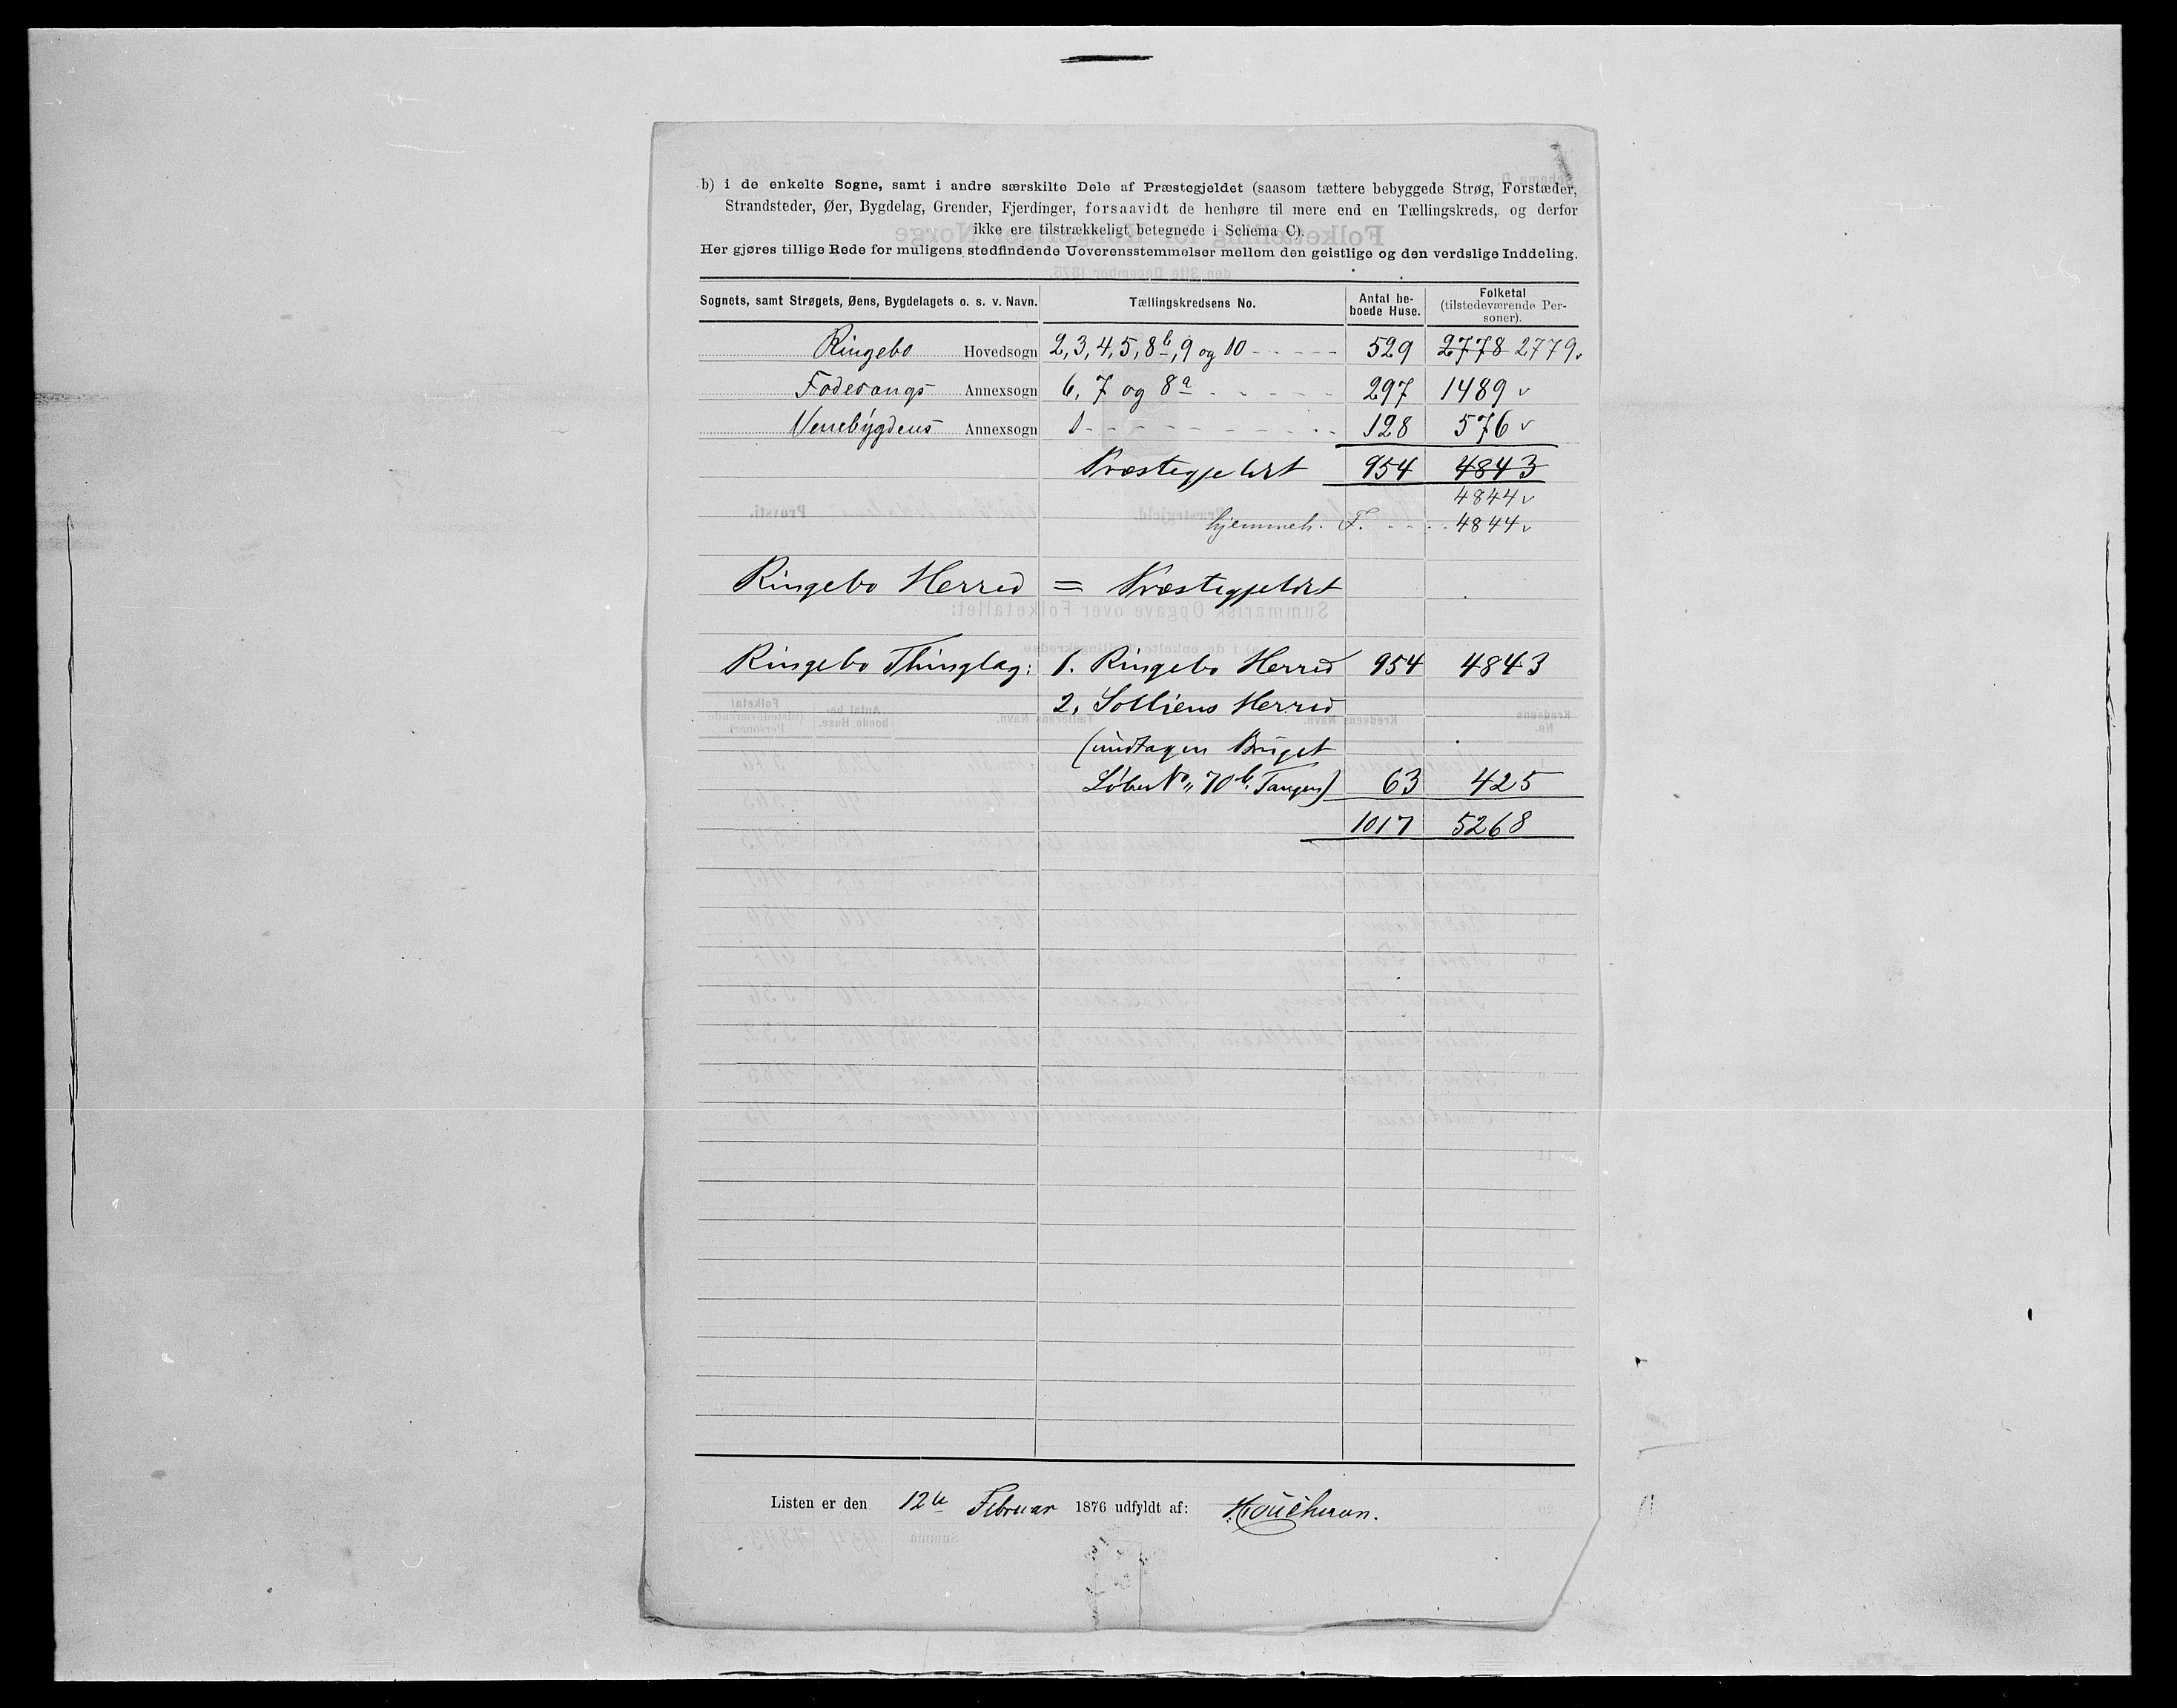 b) i de enkelte Sogne, samt i andre særskilte Dele af Præstegjeldet (saasom tættere bebyggede Strøg, Forstæder,
Strandsteder, Øer, Bygdelag, Grender, Fjerdinger, forsaavidt de henhøre til mere end en Tællingskreds, og derfor
ikke ere tilstrækkeligt betegnede i Schema C).
Her gjøres tillige Rede for muligens stedfindende Uoverensstemmelser mellem den geistlige og den verdslige Inddeling.
Sognets, samt Strøgets, Øens, Bygdelagets o. s. v. Navn. Tællingskredsens No. Antal beboede Huse. Folketal (tilstedeværende Personer).
Ringebo Hovedsogn 2, 3, 4, 5, 8b, 9 og 10 529 2778 2779
Fodevangs Annexsogn 6, 7 og 8a 297 1489
Venebygdens Annexsogn 1 128 576
Præstegjeldet 954 4843
4844
hjemmeh. F. 4844
Ringebo Herred = Præstegjeldet
Ringebo Thinglag: 1. Ringebo Herred 954 4843
2. Solliens Herred
(undtagen Bruget
Løbe No 70b, Tangen) 63 425
1017 5268
Listen er den 12te Februar 1876 udfyldt af: